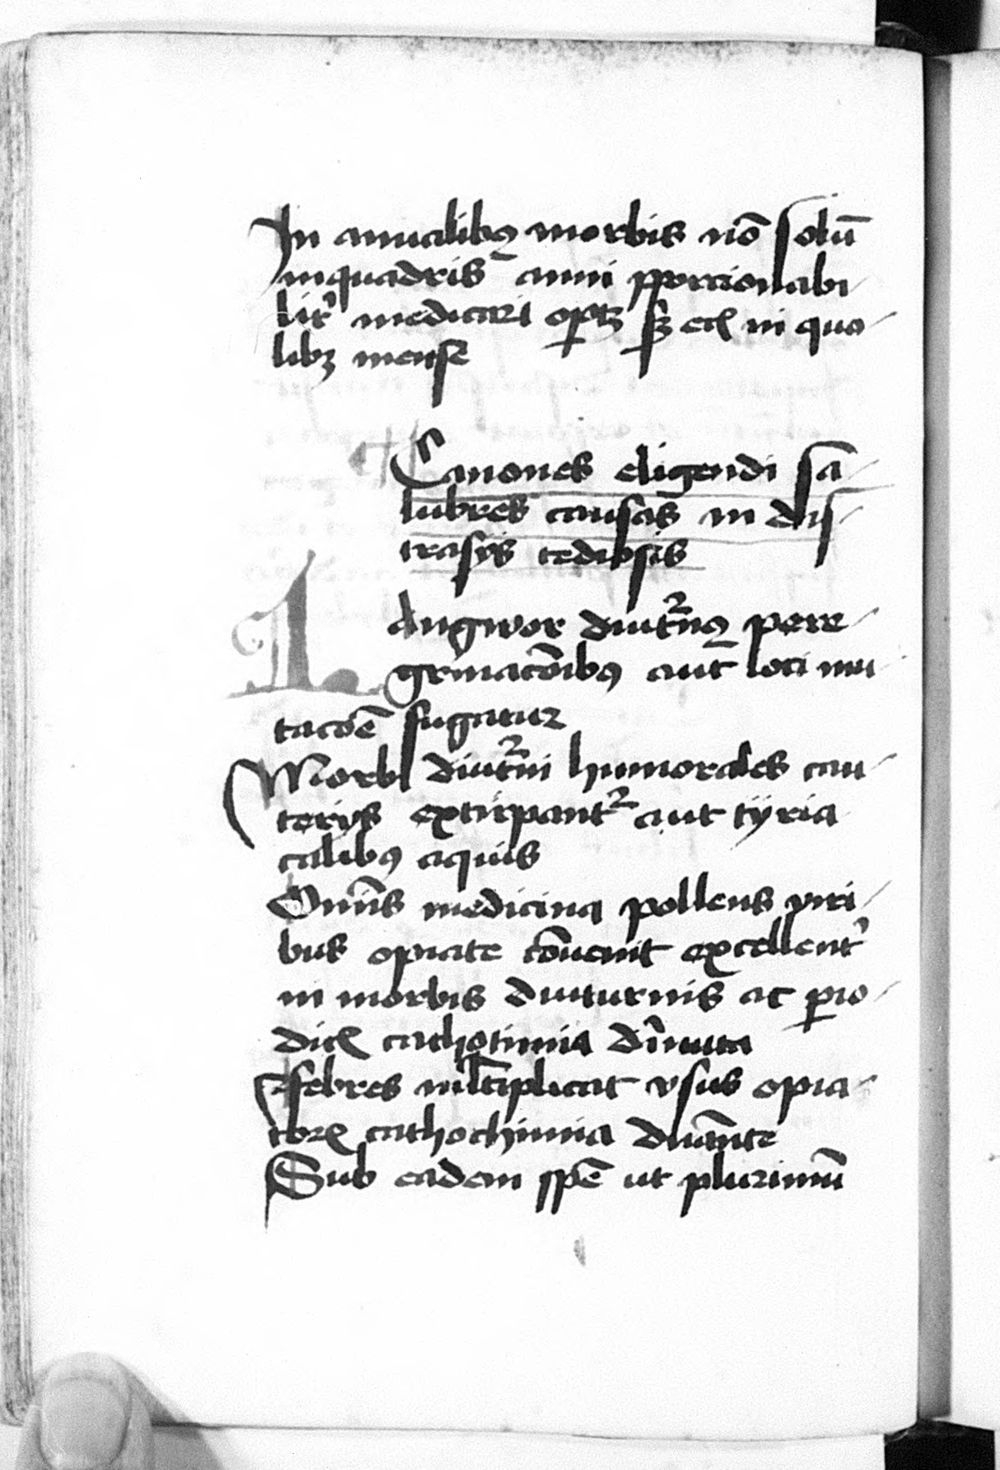 In annualibꝯ morbis nō solū
in quadris anni ꝓporcionabi
lit᷑ medicari oportꝫ sꝫ etꝭ in quo
libꝫ mense
Canones eligendi sa
lubres causas in dis
crasijs tediosis
Langwor diut᷑nꝯ pere
grinacōibꝯ aut loci mu
tacōe fugatur
Morbi diut᷑ni humorales cau
terijs extirpant᷑ aut tyria
calibꝯ aquis
Omīs medicina pollens viri
bus opiate cōuenit excellent᷑
in morbis diuturnis ac ꝑio
dicꝭ cathotimia dīnuta
febres mĺtiplicat vsus opia
torꝝ cathochimia
Sub eadem spē ut plurimū